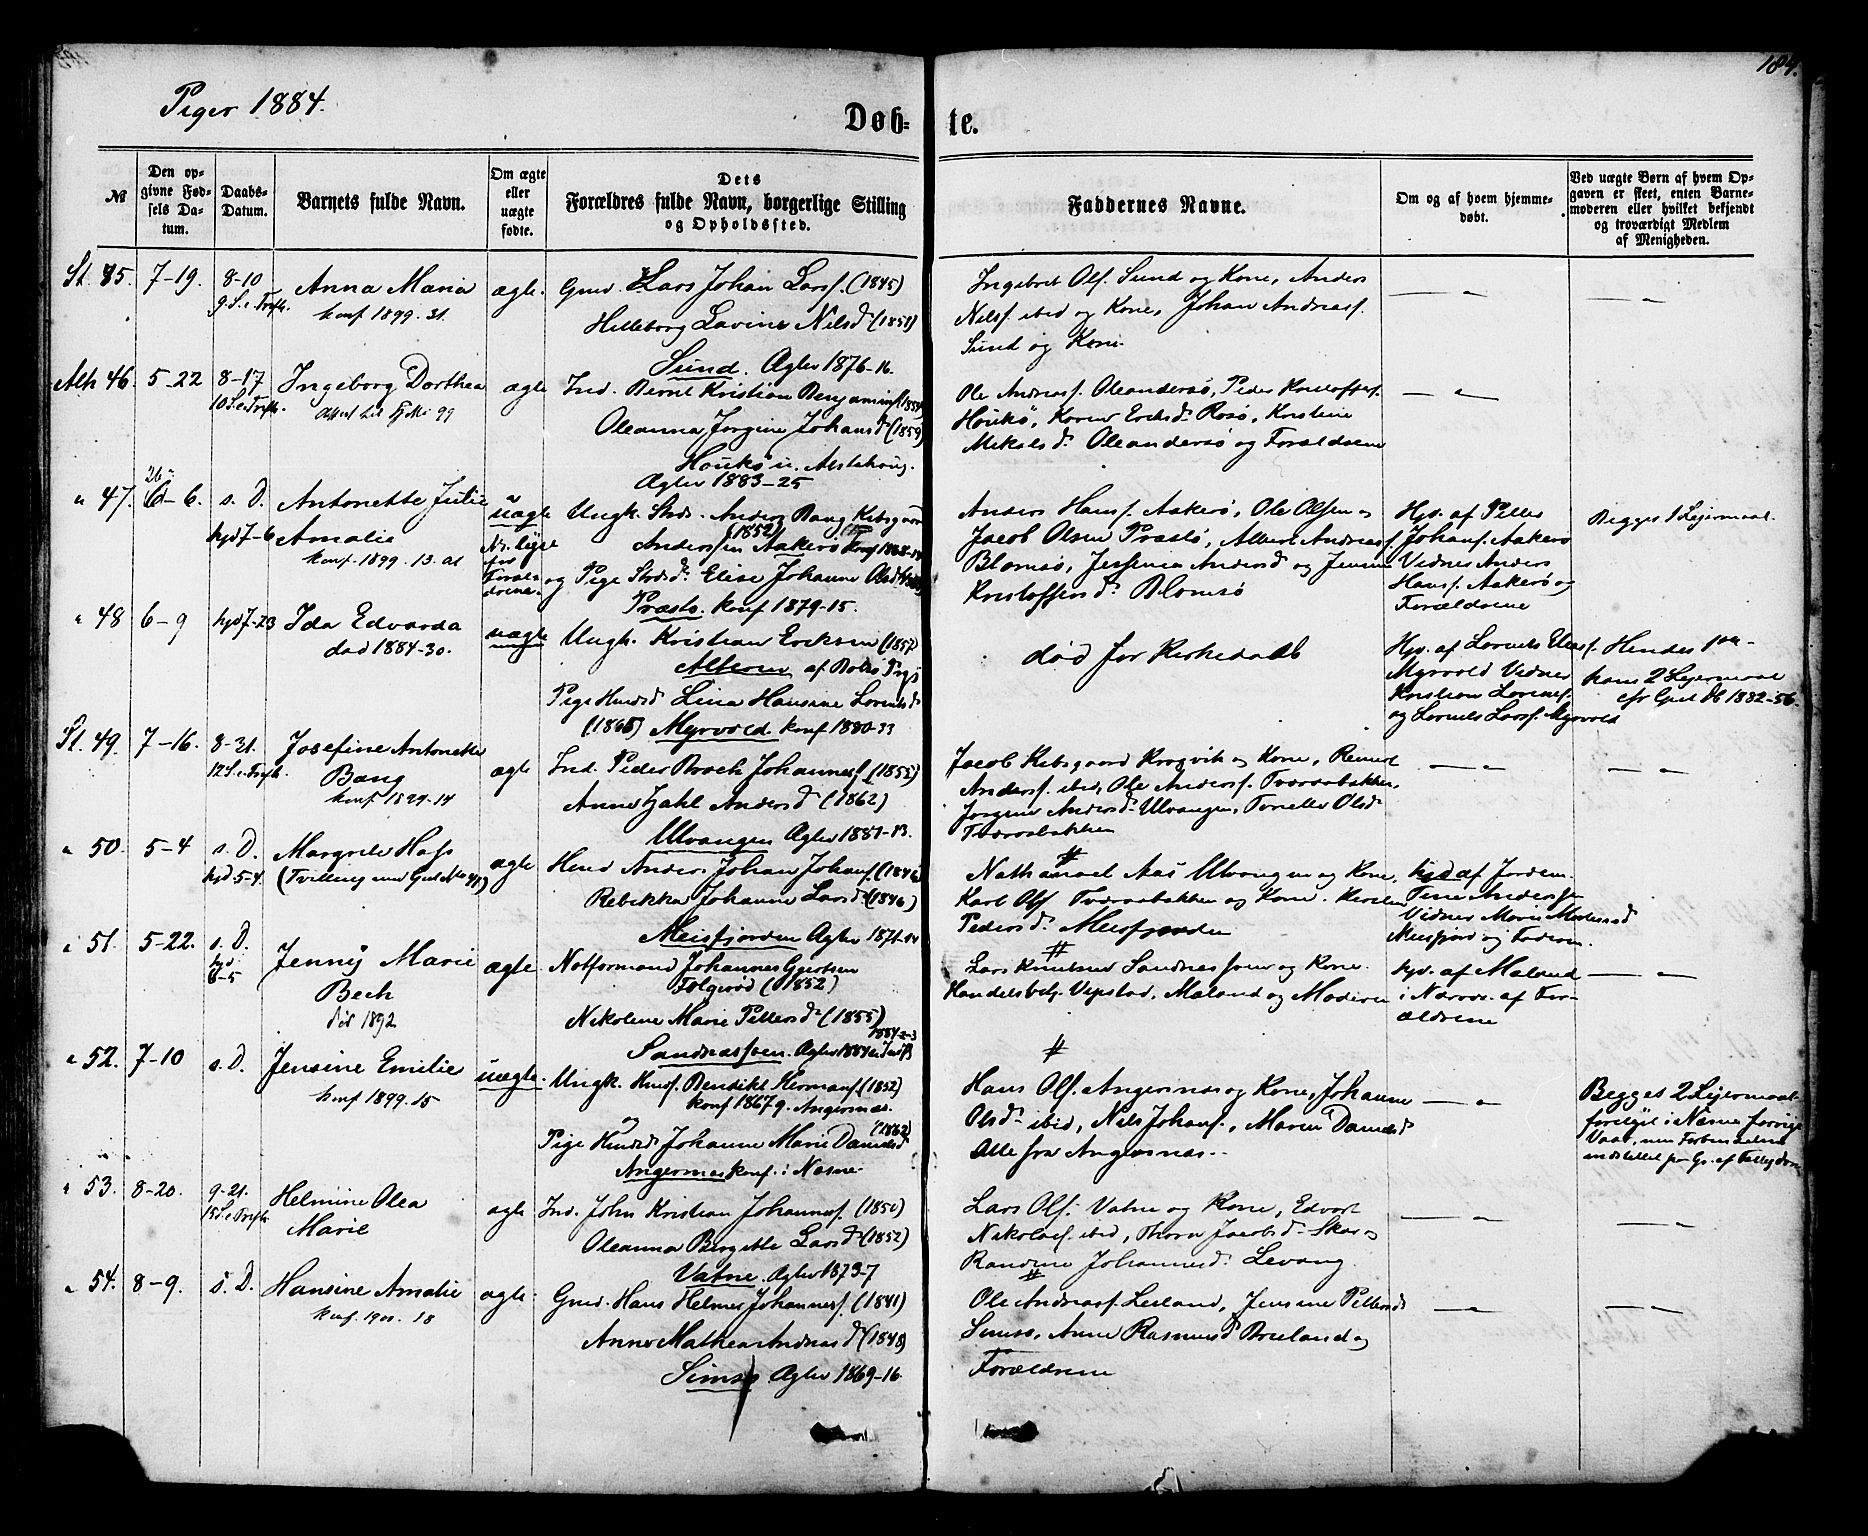 184.
Piger 1884.
Døb-
te.
№
Den op-
givne Fød-
sels Da-
tum.
Daabs-
Datum.
Barnets fulde Navn.
Om ægte
eller
uægte
fødte.
Dets
Forældres fulde Navn, borgerlige Stilling
og Opholdssted.
Faddernes Navne.
Om og af hvem hjemme-
døbt.
Ved uægte Børn af hvem Op-
gaven er skeet, enten Barne-
moderen eller hvilket bekjendt
og troværdigt Medlem
af Menigheden.
St. 45. 7-19. 8-10
9 S. e. Trefh.
Anna Maria
konf 1899. 31.
ægte.
Gmd. Lars Johan Larsf. (1845)
Helleborg Lavine Nilsd (1851)
Sund. Ægtev 1876-16.
Ingebret Olf. Sund og Kone, Anders
Nilsf. ibid og Kone, Johan Andreasf.
Sund og Kone
Alh 46. 5-22 8-17
10 S. e. Trefh.
Ingeborg Dorthea
ægte
Ind. Bernt Kristian Benjaminsf (1854)
Oleanna Jørgine Johansd (1859)
Houkø u. Alstahoug.
Ægtev 1883-25
Ole Andreasf. Oleandersø, Peder Kristoffersf.
Houkø, Karen Eriksd. Rosø, Kristine
Mikalsd. Oleandersø og Forældrene
" 47. 6-6. s. D.
hjd 7-6
Antonette Julie
Amalie
konf 1899. 13. at
uægte
Ungk. Strds. Anders Bang Kibsgaard
Andersen Aakerø
(1852)
og Pige Strdsd. Elise Johanne Olsd
Præstø. konf 1879-15.
Anders Hansf. Aakerø, Ole Olsen
Jacob Olsen Præstø, Albert Andreasf.
Blomsø, Jensine Andersd og Jensine
Kristoffersd. Blomsø
Hjv. af Petter
Johansf. Aakerø
Vidner Anders
Hansf. Aakerø og
Forældrene
Begges 1 Lejermaal.
" 48 6-9 hjd 7-23
Ida Edvarda
død 1884-30.
uægte
Ungk. Kristian Eriksen (1857)
Altern
Pige Husmd. Lina Hansine Lorentsd
(1865) Myrvold konf 1880-33
død før Kirkedaab
Hjv. af Lorents Eliasf.
Myrvold Vidner
Kristian Lorentsf.
og Lorents Larsf. Myrvold
Hendes 1ste
hans 2 Lejermaal
cfr Gud Db 1882-56.
St. 49. 7-16. 8-31.
12 S. e. Trefh.
Josefine Antonette
Bang
konf 1899-14
ægte
Ind. Peder Broch Johannesf. (1855)
Anne Hjahl Andersd (1862)
Ulvangen Ægtev 1881-13.
Jacob Kibsgaard Krogvik og Kone, Reinert
Andersf. ibid, Ole Andersf. Tværaabakken,
Jørgine Andersd. Ulvangen, Pernelle Olsd
Tværaabakken
" 50. 5-4 s. D.
hjd 5-4.
Margrete Hass
(Tvilling med Gut No 41)
ægte
Hmd Anders Johan Johansf. (1846)
Rebekka Johanne Larsd (1846)
Meisfjorden Ægtev 1871-14
#
Nathanael Aas Ulvangen og Kone,
Karl Olf Tværaabakken og Kone. Kirsten
Pedersd. Meisfjorden
hjd af Jordem.
Tine Andersen
Vidner Marie Mortensd
Meisfjord og Faderen.
" 51. 5-22. s. D.
hjd.
6-5
Jenny Marie
Bech
død 1892
ægte
Notformand Johannes Gjertsen
Følgerød (1852)
Nikoline Marie Pettersd (1855)
Sandnæssjøen.
#
Lars Knutsen Sandnæssjøen og Kone.
Handelsbetj. Vepstad, Maland og Moderen
hjv. af Maland
i Nærvær. af For-
ældrene
" 52. 7-10 s. D.
Jensine Emilie
konf 1899. 15
uægte.
Ungk. Husf. Bendikt Hermansf. (1852)
konf 1867 9. Angersnæs.
og
Pige Husmd. Johanne Marie Danielsd (1862)
Angersnæs konf. i Næsne.
#
Hans Olf. Angersnæs og Kone, Johanne
Olsd. ibid, Nils Johansf., Maren Danielsd
Alle fra Angersnæs.
Begges 2 Lejermaal
forrige
" 53. 8-20. 9-21.
15 S. e. Trefh.
Helmine Olea
Marie
ægte
Ind. John Kristian Johannesf. (1850)
Oleanna Bergitte Larsd (1852)
Vatne. Ægtev 1873-7
Lars Olf. Vatne og Kone, Edvart
Nikolaif. ibid, Thora Jacobsd.
Randine Johannesd. Levang.
" 54. 8-9. s. D.
Hansine Amalie
konf. 1900. 18
ægte.
Gmd. Hans Helmer Johannesf. (1841)
Anne Mathea Andreasd (1848)
Simsø Ægtev 1869-16.
#
Ole Andreasf. Leiland, Jensine Pettersd
Simsø, Anne Rasmusd Breeland og
Forældrene